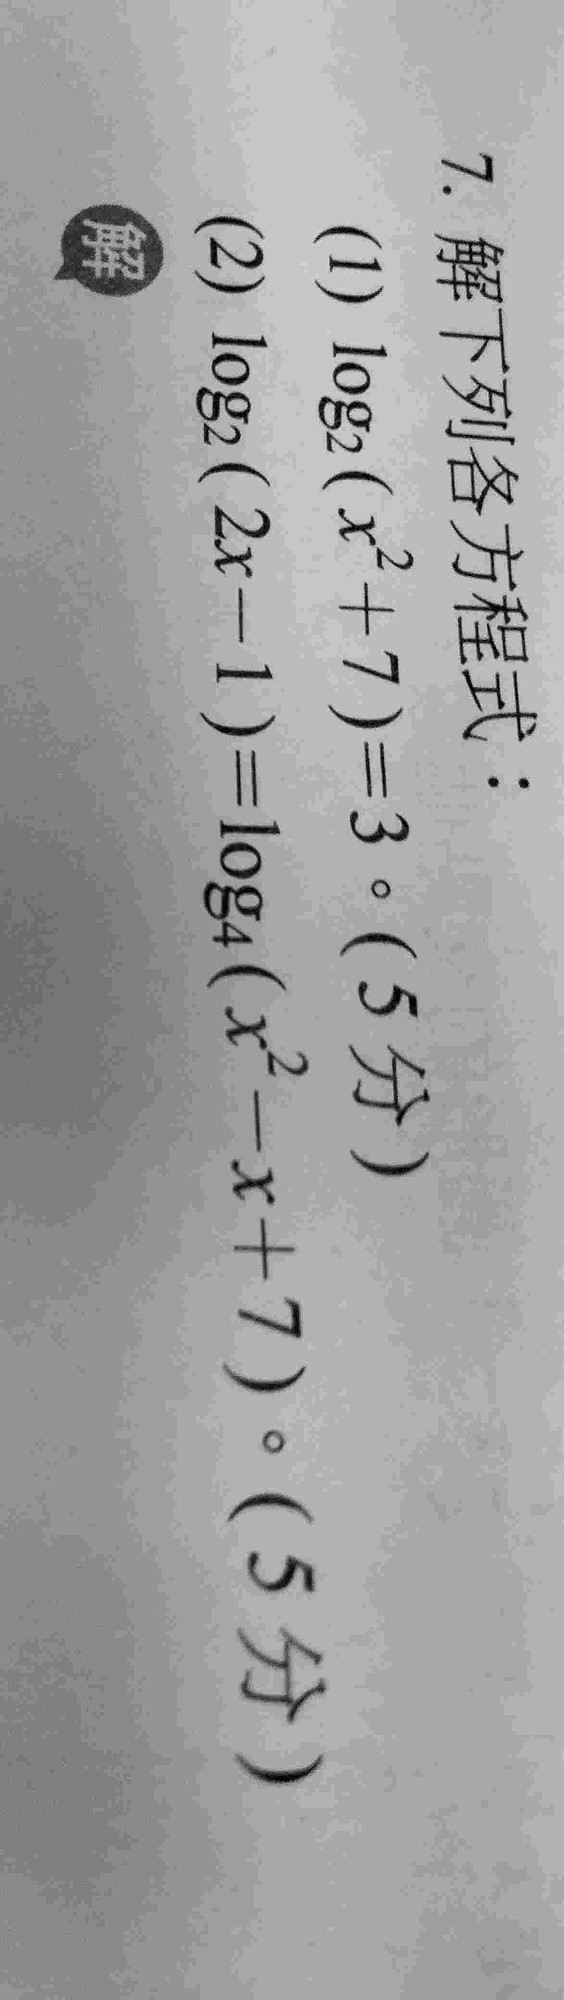 7. 解下列各方程式：
(1) log₂( x²+7 )=3。( 5 分 )
(2) log₂( 2x−1 )=log₄( x²−x+7 )。( 5 分 )
解